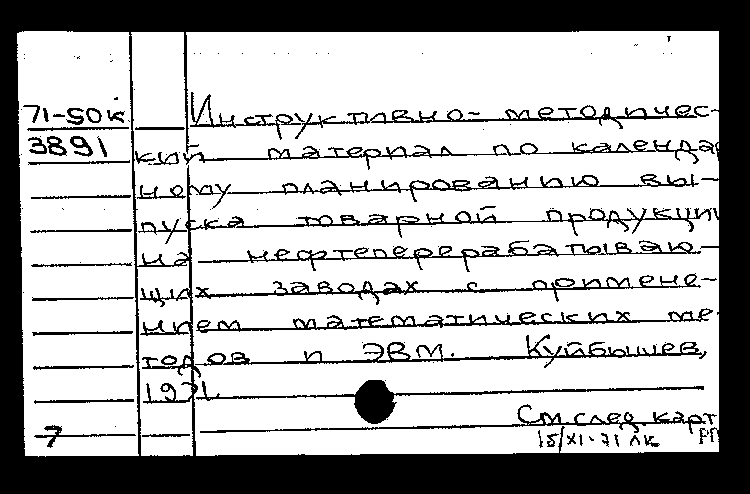 71-50к Инструктивно-методичес-
3891 кий материал по календар
ному планированию вы-
пуска товарной продукции
на нефтеперерабатываю-
щих заводах с примене-
нием математических ме-
тодов и ЭВМ. Куйбышев,
1971.
См след карт
7 15/XI-71 ЛК